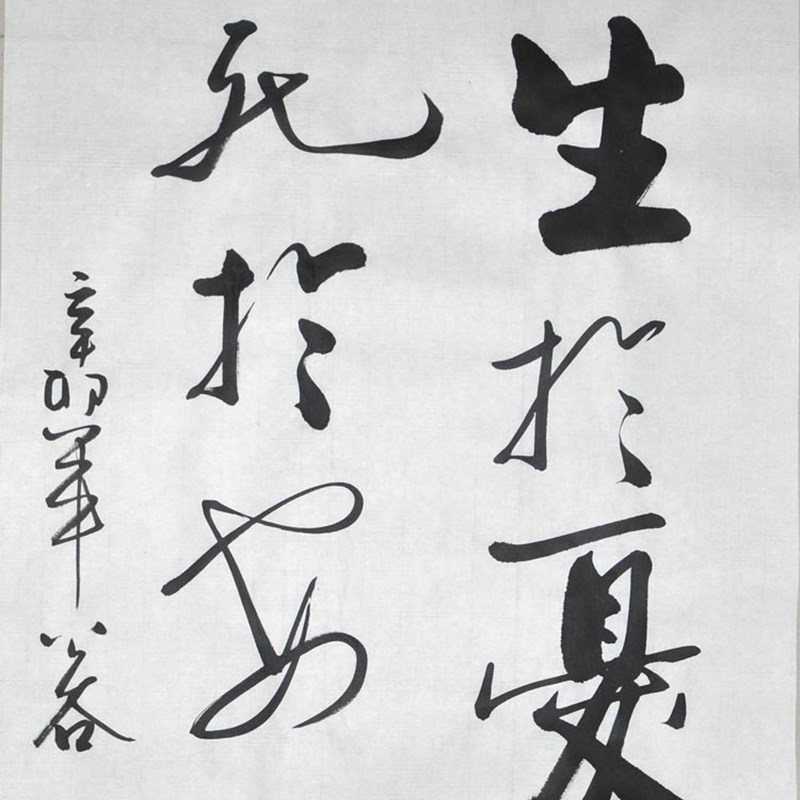 生於憂
死於安
辛卯年谷